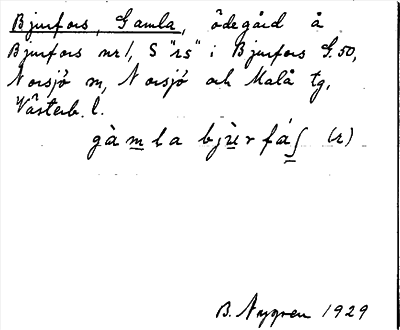 Bjurfors, Gamla, ödegård å
Bjurfors nr 1, S "rs" i Bjurfors G.50,
Norsjö sn, Norsjö och Malå tg,
Västerb. l.
gàmla bjʉ̀rfáʃ (r)
B. Nygren 1929